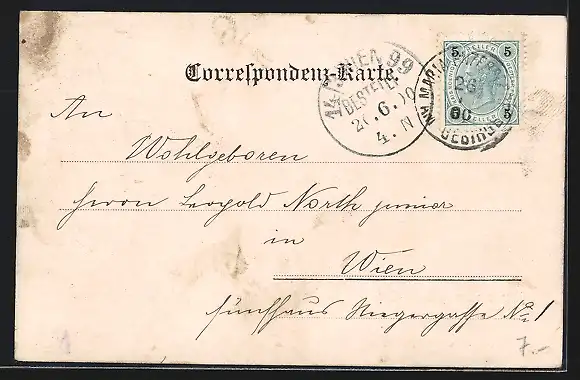 Correspondenz-Karte.
14/1 WIEN 99
BESTELLT
2 .6.00
4. N
MARIA
GEBIRGE
5 5
5 5
An
Wohlgeboren
Herrn Leopold North junior
in
Wien
fünfhaus Stiegergasse No 1
7.-